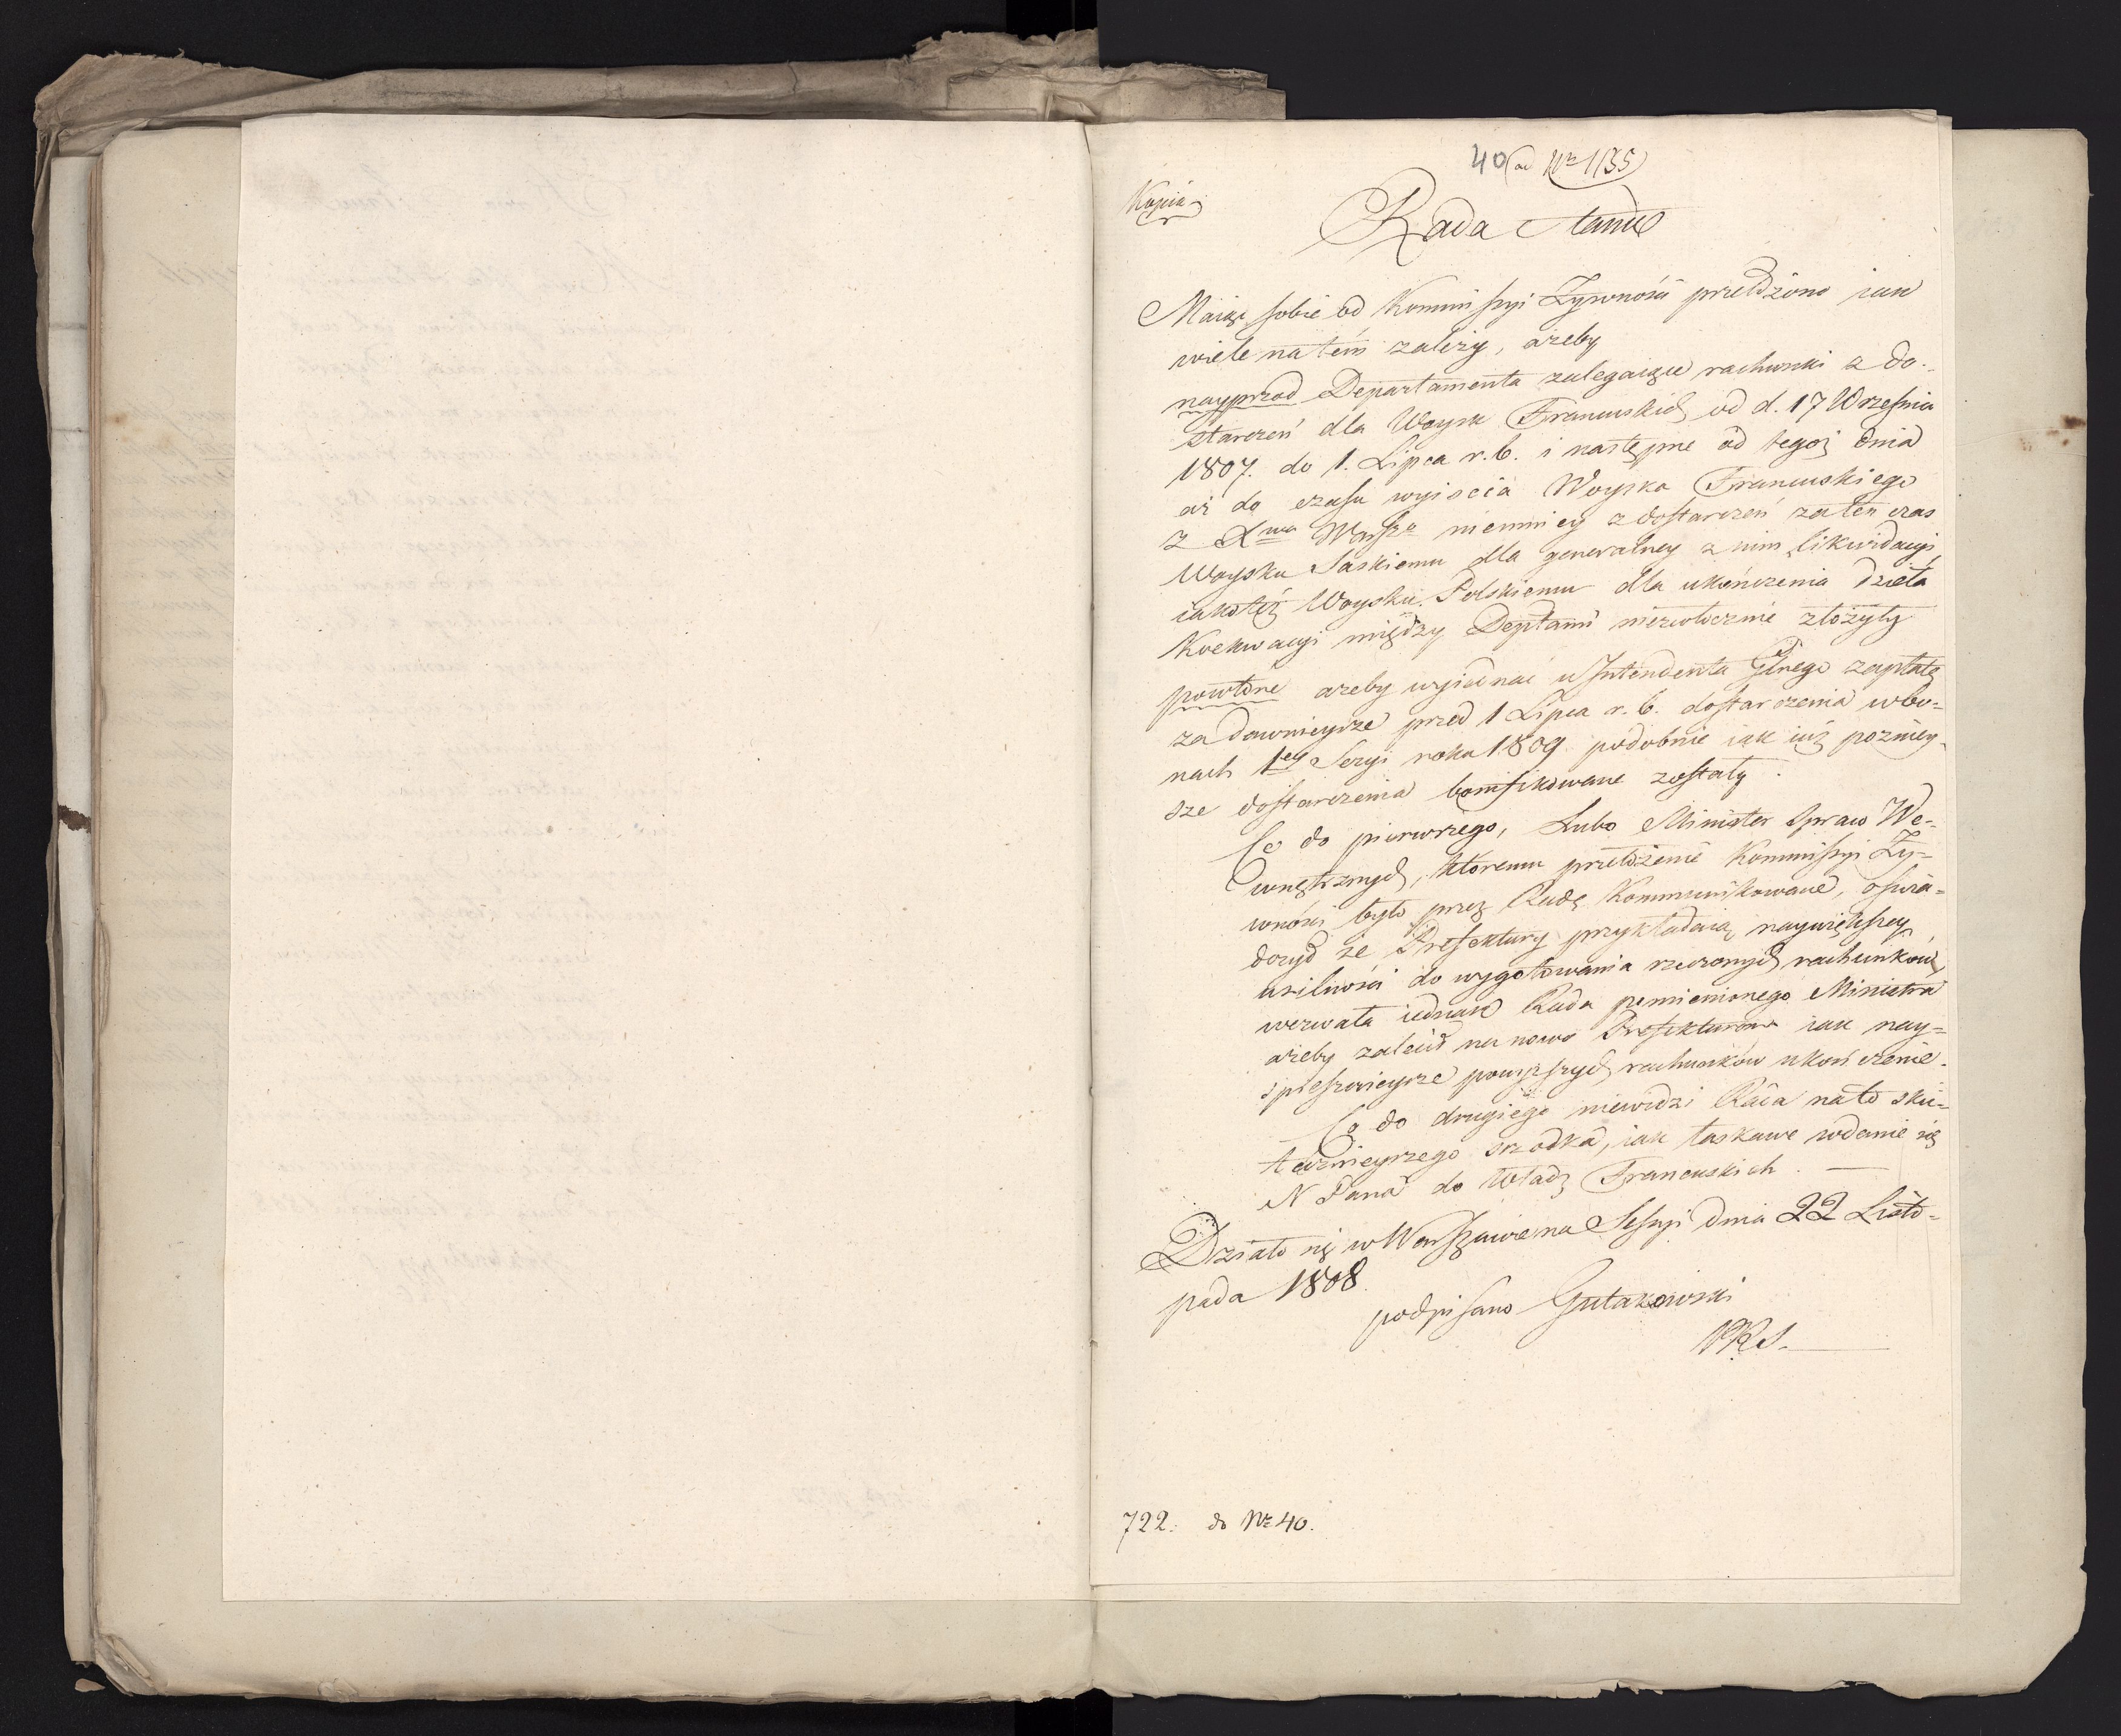 40 ad Nr 1135
Kopia
Rada Stanu
Maiąc sobie od Kommissyi Żywności przełożono iak
wiele natém zależy, ażeby
nayprzod Departamenta zalegaiące rachunki z do-
starczeń dla Woysk Francuskich od d. 17 Września
1807. do 1. Lipca r. b. i następne od tegoż dnia
aż do czasu wyiscia Woyska Francuskiego
z Xtwa Warszo niemniey z dostarczeń zaten czas
Woysku Saskiemu dla generalney z nim likwidacyi
iakotéż Woysku Polskiemu dla ukończenia dzieła
Koekwacyi między Deptami niezwłocznie złożyły
powtóre ażeby wyiednać u Intendenta Głnego zapłatę
za dawnieysze przed 1 Lipca r. b. dostarczenia w bo-
nach 1ey Seryi roku 1809 podobnie iak iuż poźniey-
sze dostarczenia bonifikowane zostały.
Co do pierwszego, Lubo Minister Spraw We-
wnętrznych, któremu przełożenie Kommissyi Ży-
wności było przez Radę Kommunikowane, oświa-
dczył że Prefektury przykładaią naywiększey
usilności do wygotowania rzeczonych rachunków,
wezwała iednak Rada pemienionego Ministra
ażeby zalecił na nowo Prefekturom iak nay-
spiesznieysze powyższych rachunków ukończenie.
Co do drugiego niewidzi Rada nato sku-
tecznieyszego srzodka, iak łaskawe wdanie się
N Pana do Władz Francuskich.
Działo się w Warszawie na Sessyi dnia 22 Listo-
pada 1808.
podpisano Gutakowski
PRS.
722. do Nr 40.